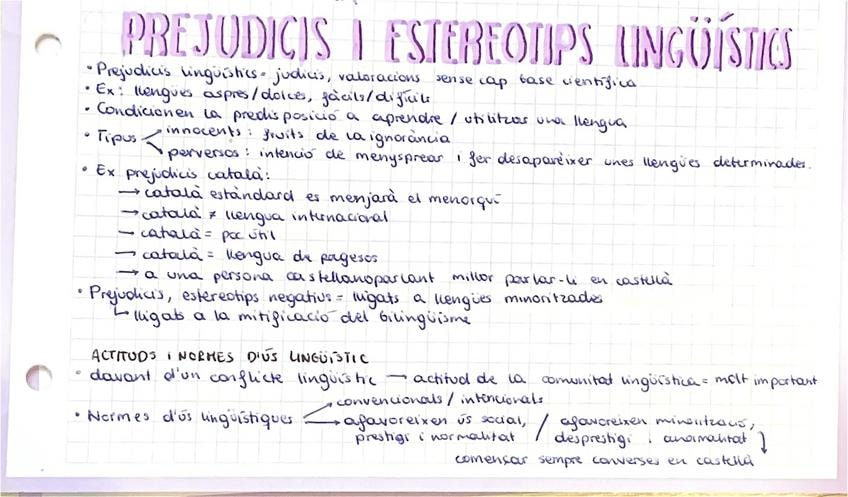 PREJUDICIS I ESTEREOTIPS LINGÜÍSTICS
• Prejudicis lingüístics = judicis, valoracions sense cap base científica
• Ex: llengües aspres/dolces, fàcils/difícils
• Condicionen la predisposició a aprendre / utilitzar una llengua
• Tipus innocents: fruits de la ignorància
perversos: intenció de menysprear i fer desaparèixer unes llengües determinades.
• Ex prejudicis català:
→ català estàndard es menjarà el menorquí
→ català ≠ llengua internacional
→ català = poc útil
→ català = llengua de pagesos
→ a una persona castellanoparlant millor parlar-li en castellà
• Prejudicis, estereotips negatius = lligats a llengües minoritzades
↳ lligats a la mitificació del bilingüisme
ACTITUDS I NORMES D'ÚS LINGÜÍSTIC
• davant d'un conflicte lingüístic → actitud de la comunitat lingüística = molt important
convencionals / intencionals
• Normes d'ús lingüístiques → afavoreixen ús social, / afavoreixen minorització,
prestigi i normalitat / desprestigi i anormalitat
començar sempre converses en castellà